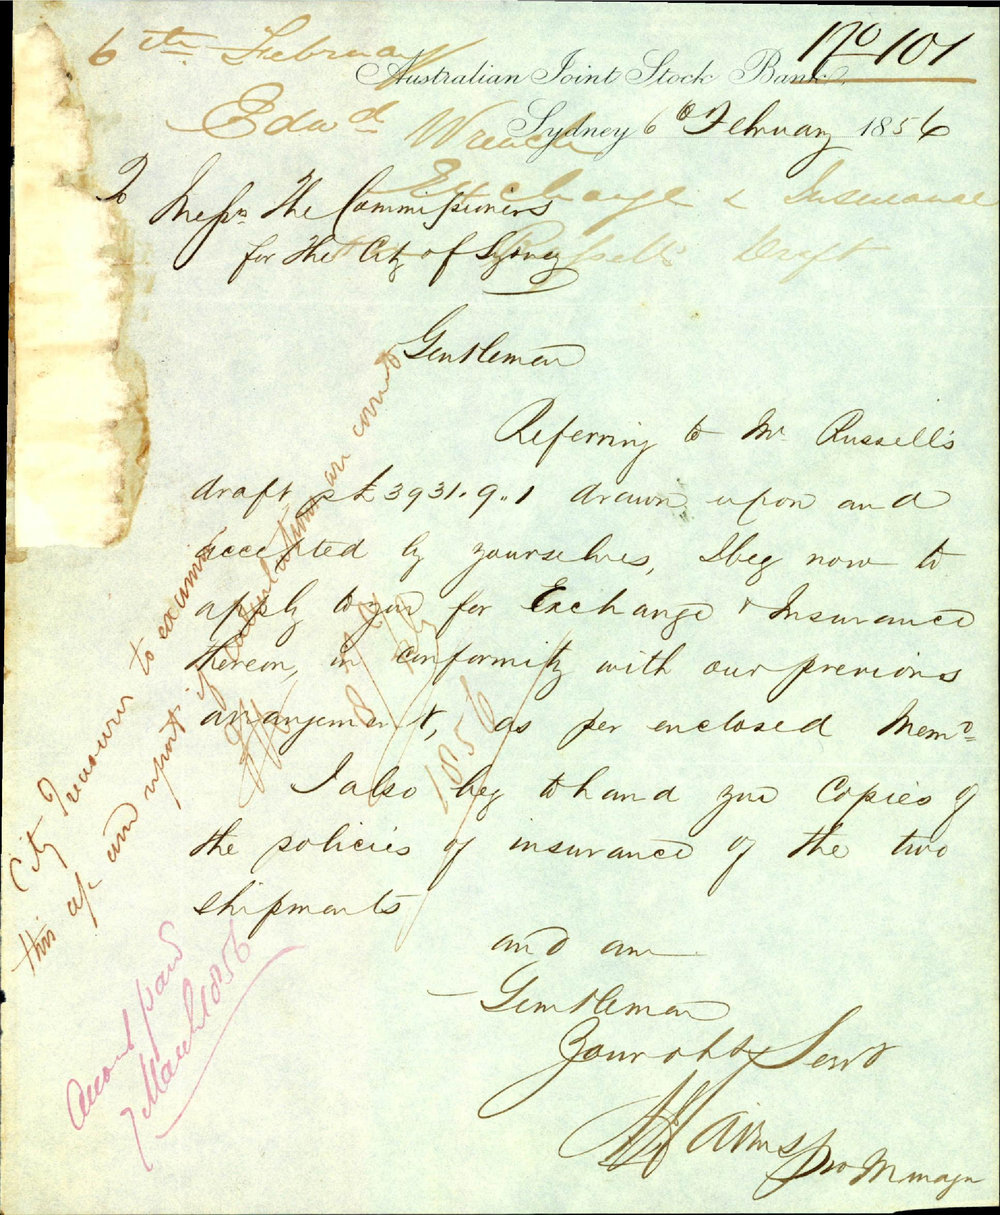 No 101
6th February
Australian Joint Stock Bank
Edwd Wrench
Sydney 6th February 1856
Exchange & Insurance
Russell's Draft
To Messrs The Commissioners
for the City of Sydney
Gentlemen
Referring to Mr Russell's
draft, £3931.9..1 drawn upon and
accepted by yourselves, I beg now to
apply to you for Exchange & Insurance
thereon, in conformity with our previous
arrangement, as per enclosed Memo
I also beg to hand you Copies of
the policies of insurance of the two
shipments
and am
Gentlemen
Your obdt Servt
pro Manager
City Treasurer to examine
this a/c and report if calculations are correct
8 July 1856
Account paid
7 March 1856